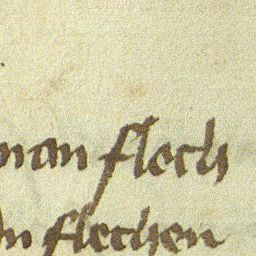 man flech
in flechen